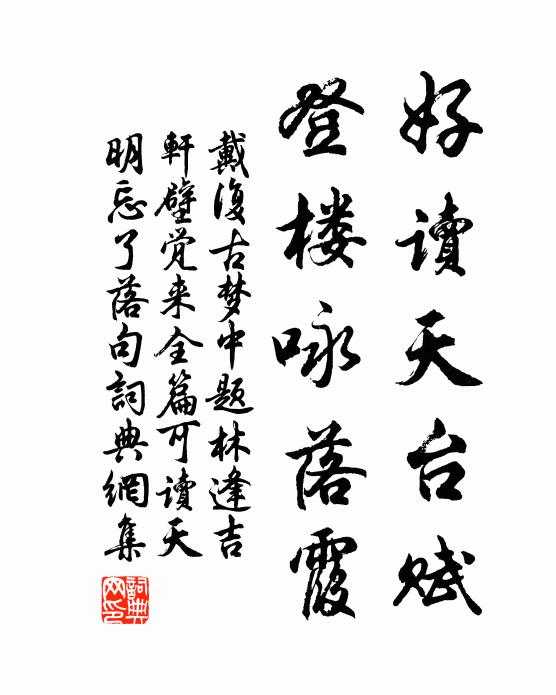 好讀天台赋
登楼咏落霞
戴復古梦中题林逢吉
軒壁觉来全篇可讀天
明忘了落句詞典網集
詞典網印